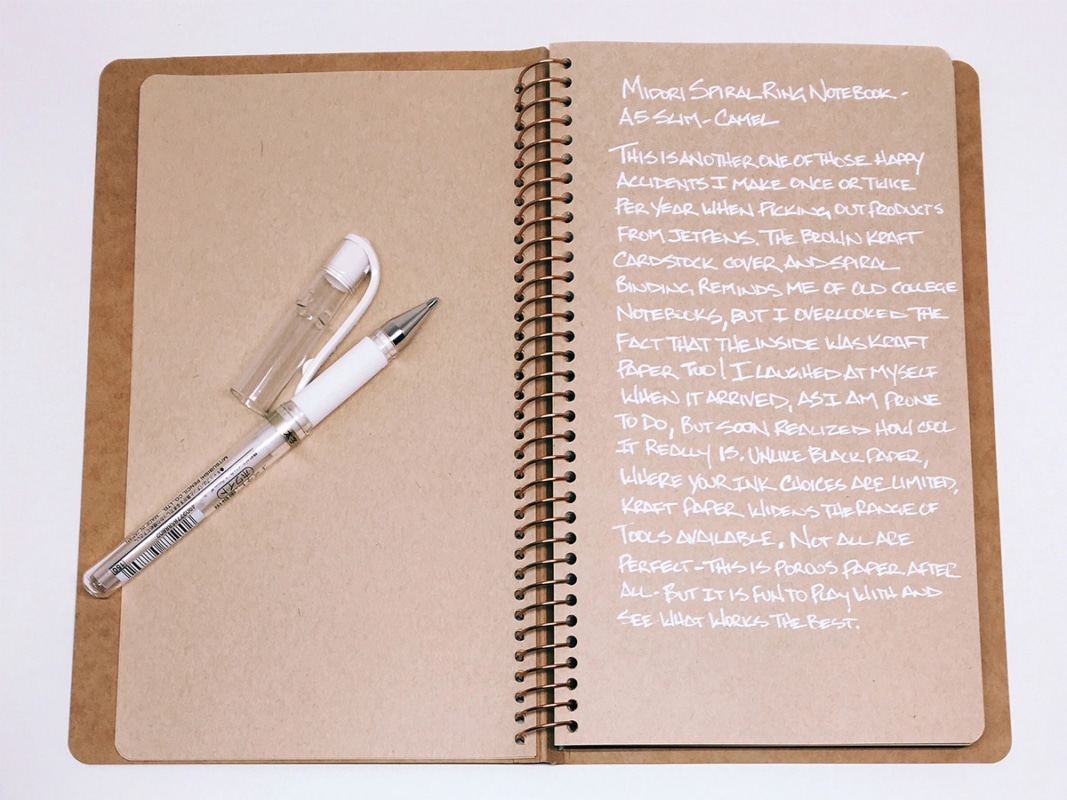 MIDORI SPIRAL RING NOTEBOOK -
A5 SLIM - CAMEL
THIS IS ANOTHER ONE OF THOSE HAPPY
ACCIDENTS I MAKE ONCE OR TWICE
PER YEAR WHEN PICKING OUT PRODUCTS
FROM JETPENS. THE BROWN KRAFT
CARDSTOCK COVER AND SPIRAL
BINDING REMINDS ME OF OLD COLLEGE
NOTEBOOKS, BUT I OVERLOOKED THE
FACT THAT THE INSIDE WAS KRAFT
PAPER TOO! I LAUGHED AT MYSELF
WHEN IT ARRIVED, AS I AM PRONE
TO DO, BUT SOON REALIZED HOW COOL
IT REALLY IS. UNLIKE BLACK PAPER,
WHERE YOUR INK CHOICES ARE LIMITED,
KRAFT PAPER WIDENS THE RANGE OF
TOOLS AVAILABLE. NOT ALL ARE
PERFECT - THIS IS POROUS PAPER AFTER
ALL - BUT IT IS FUN TO PLAY WITH AND
SEE WHAT WORKS THE BEST.
MITSUBISHI PENCIL CO., LTD.